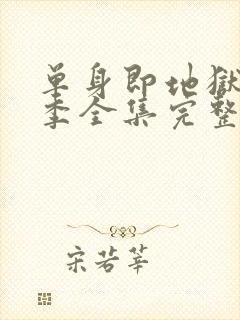 单身即地獄
季全集完整
宋若莘